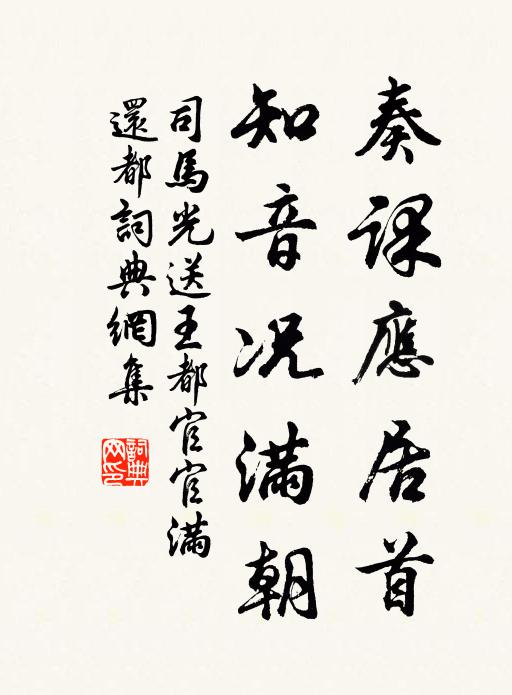 奏課應居首
知音况滿朝
司馬光送王都官官滿
還都詞典網集
詞典
网印